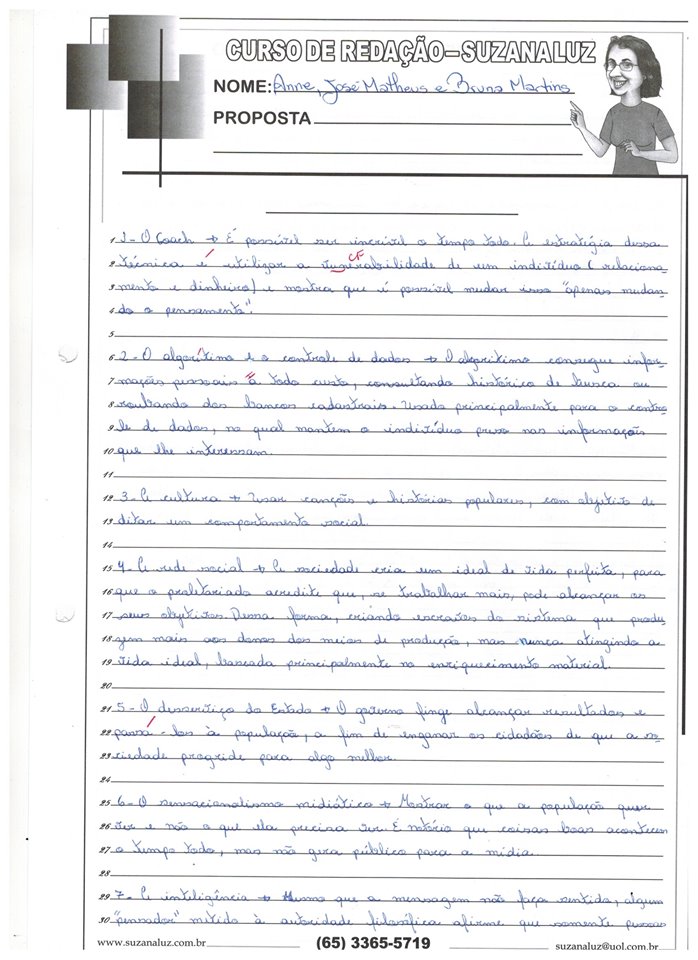 CURSO DE REDAÇÃO–SUZANA LUZ
NOME: Anne, José Matheus e Bruna Martins
PROPOSTA
1 1- O Coach → É possível ser incrível o tempo todo. A estratégia dessa
2 técnica é utilizar a vunerabilidade de um indivíduo (relaciona-
CF
3 mento e dinheiro) e mostra que é possível mudar isso "apenas mudan-
4 do o pensamento".
5
6 2- O algorítimo e o controle de dados → O algorítimo consegue infor-
7 mações pessoais a todo custo, consultando histórico de busca ou
8 roubando dos bancos cadastrais. Usado principalmente para o contro-
9 le de dados, no qual mantem o indivíduo preso nas informações
10 que lhe interessam.
11
12 3- A cultura → Usar canções e histórias populares, com objetivo de
13 ditar um comportamento social.
14
15 4- A rede social → A sociedade cria um ideal de vida perfeita, para
16 que o proletariado acredite que, se trabalhar mais, pode alcançar os
17 seus objetivos. Dessa forma, criando escravos do sistema que produ-
18 zem mais aos donos dos meios de produção, mas nunca atingindo a
19 vida ideal, baseada principalmente no enriquecimento material.
20
21 5- O desserviço do Estado → O governo finge alcançar resultados e
22 passá-los à população, a fim de enganar os cidadãos de que a so-
23 ciedade progride para algo melhor.
24
25 6- O sensacionalismo midiático → Mostrar o que a população quer
26 ver e não o que ela precisa ver. É notório que coisas boas acontecem
27 o tempo todo, mas não gera público para a mídia.
28
29 7- A inteligência → Mesmo que a mensagem não faça sentido, algum
30 "pensador" metido à autoridade filosófica afirme que somente pessoas
www.suzanaluz.com.br
(65) 3365-5719
suzanaluz@uol.com.br